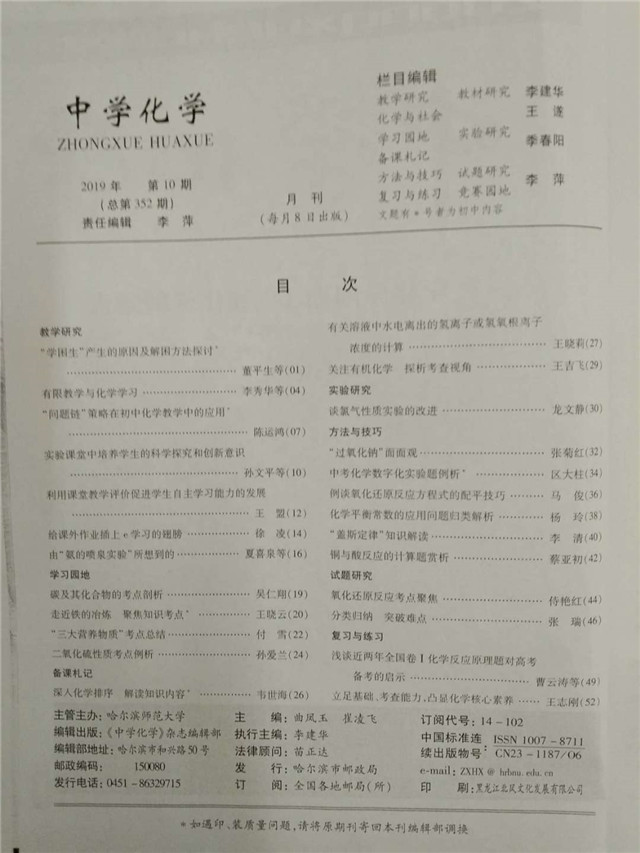 中学化学
ZHONGXUE HUAXUE
2019年 第10期
(总第352期)
责任编辑 李 萍
月 刊
(每月8日出版)
栏目编辑
教学研究 教材研究 李建华
化学与社会 王 遂
学习园地 实验研究 季春阳
备课札记
方法与技巧 试题研究 李 萍
复习与练习 竞赛园地
文题有*号者为初中内容
目 次
教学研究
“学困生”产生的原因及解困方法探讨*
董平生等(01)
有限教学与化学学习 李秀华等(04)
“问题链”策略在初中化学教学中的应用*
陈运鸿(07)
实验课堂中培养学生的科学探究和创新意识
孙文平等(10)
利用课堂教学评价促进学生自主学习能力的发展
王 盟(12)
给课外作业插上e学习的翅膀 徐 凌(14)
由“氨的喷泉实验”所想到的 夏喜泉等(16)
学习园地
碳及其化合物的考点剖析 吴仁翔(19)
走近铁的冶炼 聚焦知识考点* 王晓云(20)
“三大营养物质”考点总结 付 雪(22)
二氧化硫性质考点例析 孙爱兰(24)
备课札记
深入化学排序 解读知识内容* 韦世海(26)
有关溶液中水电离出的氢离子或氢氧根离子
浓度的计算 王晓莉(27)
关注有机化学 探析考查视角 王吉飞(29)
实验研究
谈氯气性质实验的改进 龙文静(30)
方法与技巧
“过氧化钠”面面观 张菊红(32)
中考化学数字化实验题例析* 区大柱(34)
例谈氧化还原反应方程式的配平技巧 马 俊(36)
化学平衡常数的应用问题归类解析 杨 玲(38)
“盖斯定律”知识解读 李 清(40)
铜与酸反应的计算题赏析 蔡亚初(42)
试题研究
氧化还原反应考点聚焦 侍艳红(44)
分类归纳 突破难点 张 瑞(46)
复习与练习
浅谈近两年全国卷1化学反应原理题对高考
备考的启示 曹云涛等(49)
立足基础、考查能力,凸显化学核心素养 王志刚(52)
主管主办:哈尔滨师范大学
编辑出版:《中学化学》杂志编辑部
编辑部地址:哈尔滨市和兴路50号
邮政编码: 150080
发行电话:0451-86329715
主 编:曲凤玉 崔凌飞
执行主编:李建华
法律顾问:苗正达
发 行:哈尔滨市邮政局
订 阅:全国各地邮局(所)
订阅代号:14-102
中国标准连续出版物号: ISSN 1007-8711
CN23-1187/O6
e-mail:ZXHX @ hrbnu.edu.cn
印 刷:黑龙江北风文化发展有限公司
*如遇印、装质量问题,请将原期刊寄回本刊编辑部调换